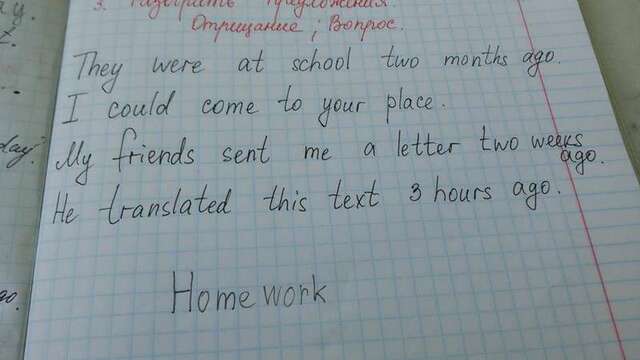 3. предложения.
Отрицание; Вопрос.
They were at school two months ago.
I could come to your place.
My friends sent me a letter two weeks
ago.
He translated this text 3 hours ago.
Homework